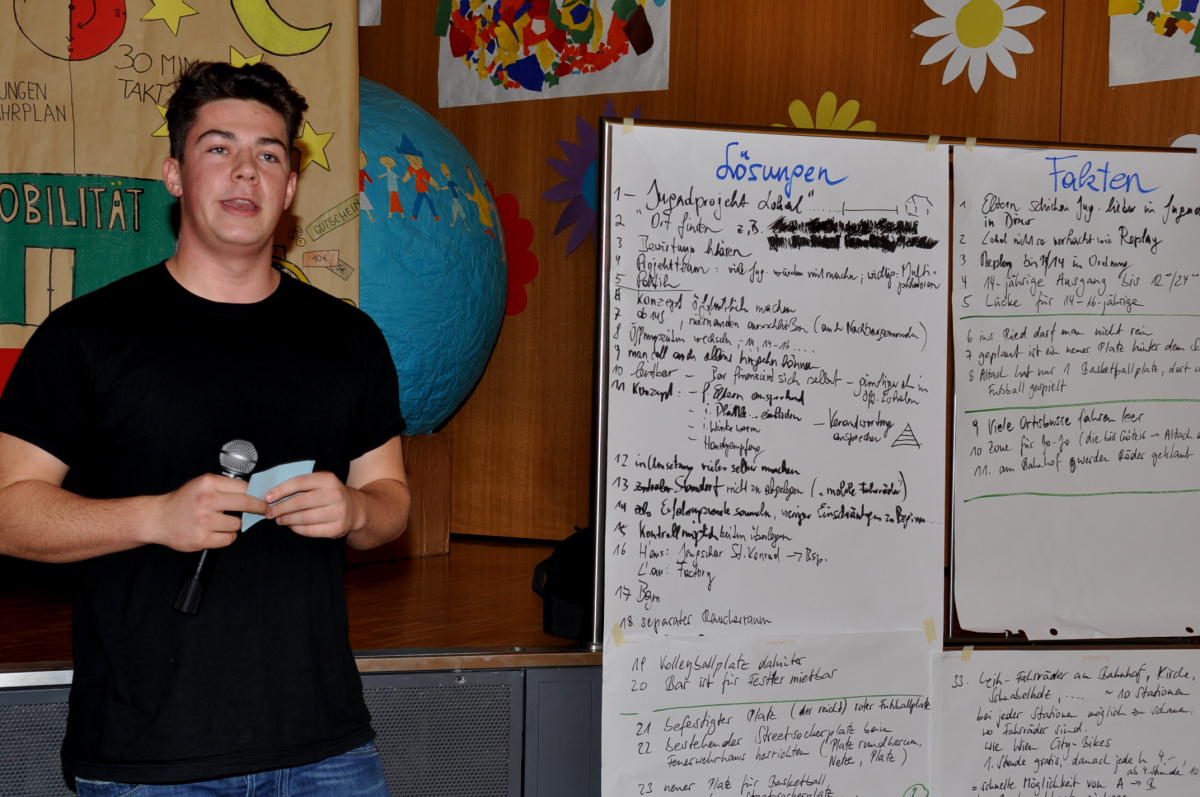 3
30 MIN
TAKT
UNGEN
HRPLAN
OBILITÄT
GUTSCHEIN
10€
Lösungen
1 - "Jugendprojekt Lokal"......
2 Ort finden z.B.
3 Bewirtung klären
4 Projektteam: viele Jug. würden mitmachen; wichtig: Multi-
plikatoren
5
6 Konzept öffentlich machen
7 ab 14J., niemanden ausschließen (auch Nachbargemeinden)
8 Öffnungszeiten wechseln, 14, 14-16.....
9 man soll auch alleine hingehen können
10 leistbar - Bar finanziert sich selbst - günstiger als in
öff. Lokalen
11 Konzept: - f. Eltern ansprechend
- i.
- i. Winter warm
- Handyempfang
- Verantwortung
ansprechen
12 in Umsetzung vieles selber machen
13 Standort nicht zu abgelegen ("mobile Fahrräder")
14 als Erfahrungswerte sammeln, weniger Einschränkungen zu Beginn...
15 Kontrollmöglichkeiten überlegen
16 H'ems: Jungschar St. Konrad → Bsp.
L'au: Factory
17 Bgm
18 separater Raucherraum
19 Volleyballplatz dahinter
20 Bar ist für Feste mietbar
21 befestigter Platz (der reicht) roter Fußballplatz
22 bestehender Streetsockerplatz beim
Feuerwehrhaus herrichten (Platz rundherum,
Netze, Platz)
23 neuer Platz für Basketball,
Fakten
1 Eltern schicken Jug. lieber in Jugend
in Dorf
2 Lokal nicht so verraucht wie Replay
3 Replay bis 13/14 in Ordnung
4 14-jährige Ausgang bis 12°°/24°°
5 Lücke für 14-16-jährige
6 ins Ried darf man nicht rein
7 geplant ist ein neuer Platz hinter dem
8 Altach hat nur 1 Basketballplatz, dort w
Fußball gespielt
9 Viele Ortsbusse fahren leer
10 Zone für Jo-Jo (die bis Götzis → Altach
11. am Bahnhof werden Räder geklaut
33. Leih-Fahrräder am Bahnhof, Kirche,
Schnabelholz, .... ~10 Stationen
bei jeder Stationen möglich zu schauen,
wo Fahrräder sind.
wie Wien City-Bikes
1. Stunde gratis, danach jede h 4.-
ab 4. Stunde 10
= schnelle Möglichkeit von A → B